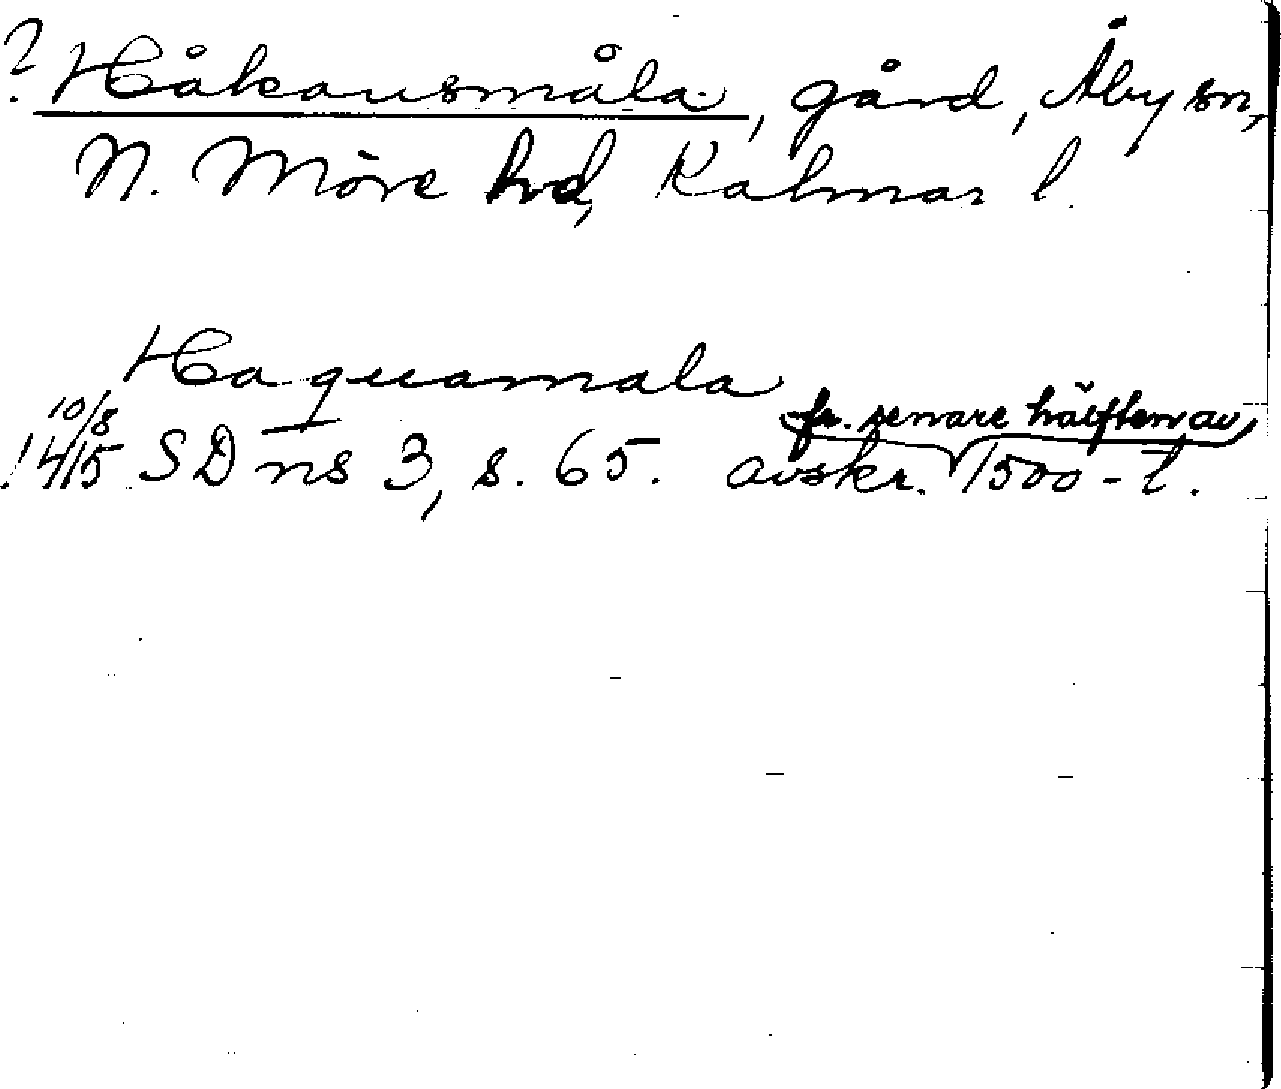 ? Håkansmåla, gård, Åby sn,
N. Möre hd, Kalmar l.
Haquamala
10/8 fr. senare hälften av
1415 SD ns 3, s. 65. avskr. 1500-t.